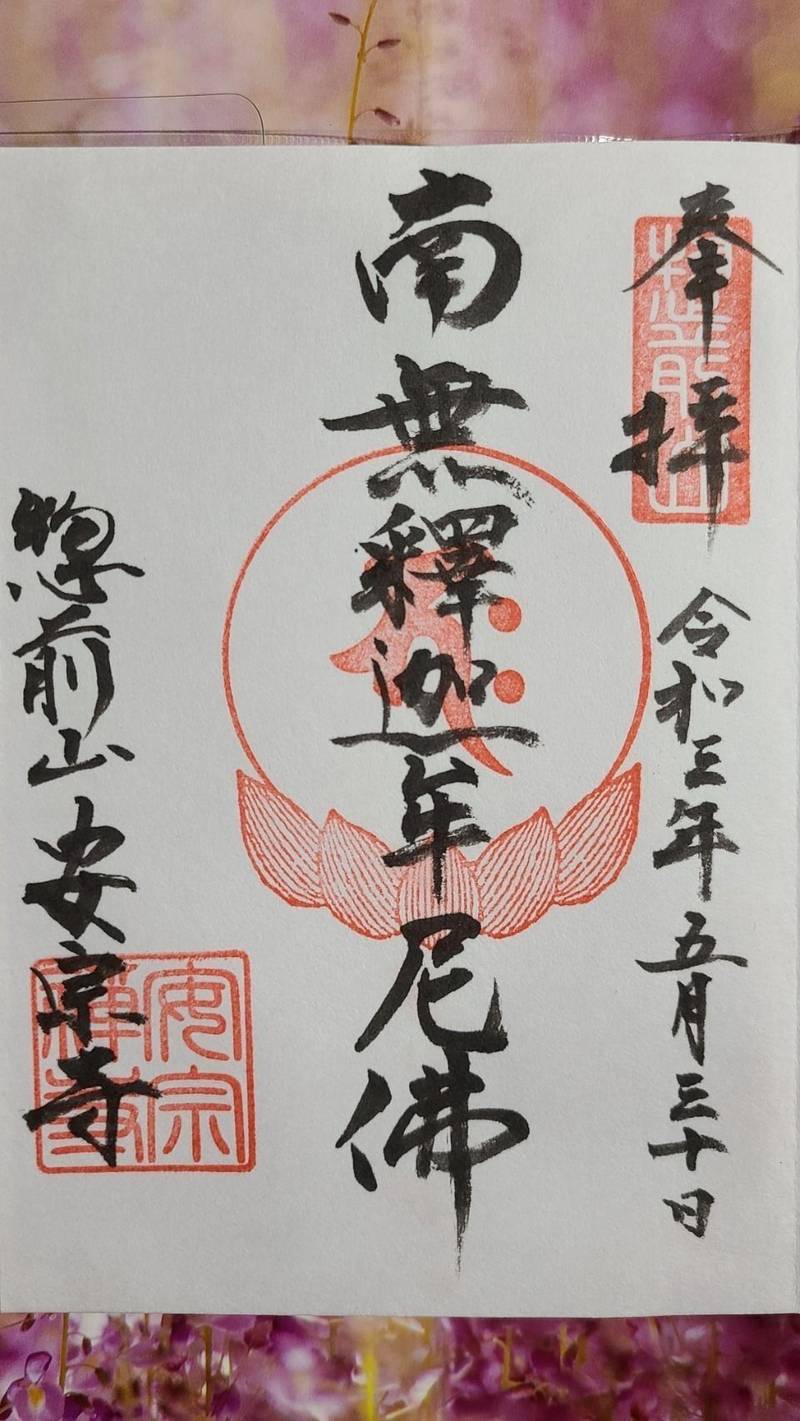 奉拝
令和三年五月三十日
南無釋迦牟尼佛
惣前山安宗寺
安宗禅寺